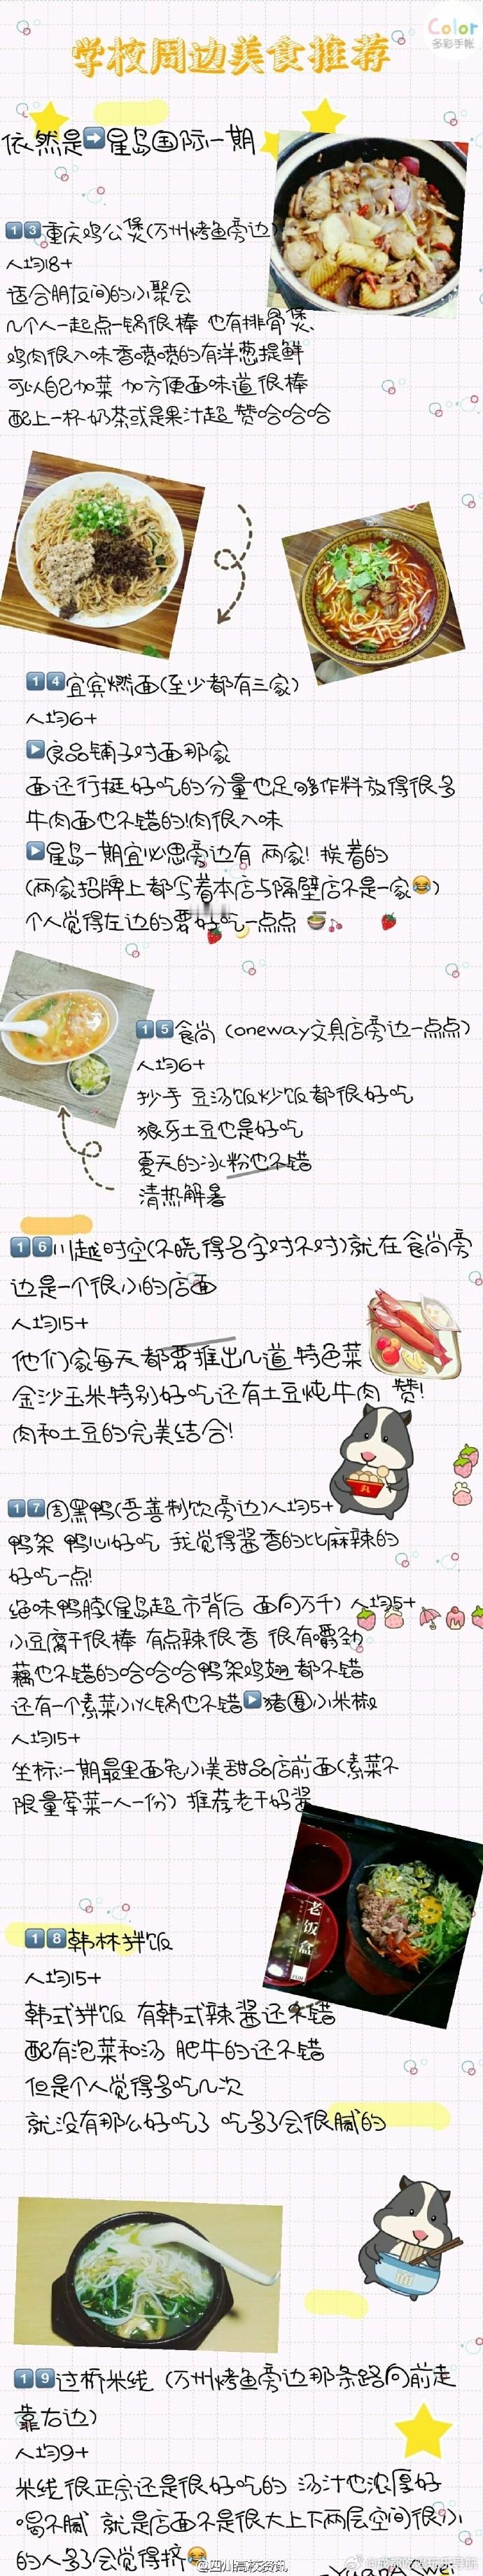 Color
多彩手帐
学校周边美食推荐
依然是➡星岛国际一期
13重庆鸡公煲(万州烤鱼旁边)
人均18+
适合朋友间的小聚会
几个人一起点一锅很棒 也有排骨煲、
鸡肉很入味香喷喷的有洋葱提鲜
可以自己加菜 加方便面味道很棒
配上一杯奶茶或是果汁超赞哈哈哈
14宜宾燃面(至少都有三家)
人均6+
▶良品铺子对面那家
面还行挺好吃的分量也足够作料放得很多
牛肉面也不错的!肉很入味
▶星岛一期宜必思旁边有 两家! 挨着的
(两家招牌上都写着本店与隔壁店不是一家😂)
个人觉得左边的要好吃一点点
15食尚 (oneway文具店旁边一点点)
人均6+
抄手 豆汤饭炒饭都很好吃
狼牙土豆也是好吃
夏天的冰粉也不错
清热解暑
16川越时空(不晓得名字对不对)就在食尚旁
边是一个很小的店面
人均15+
他们家每天都要推出几道特色菜
金沙玉米特别好吃还有土豆炖牛肉 赞!
肉和土豆的完美结合!
17周黑鸭(吾善制饮旁边)人均5+
鸭架 鸭心好吃 我觉得酱香的比麻辣的
好吃一点!
绝味鸭脖(星岛超市背后 面向万千) 人均5+
小豆腐干很棒 有点辣很香 很有嚼劲
藕也不错的哈哈哈鸭架鸡翅都不错
还有一个素菜小火锅也不错▶猪圈小米椒
人均15+
坐标:一期最里面兔小美甜品店前面(素菜不
限量荤菜一人一份) 推荐老干妈酱
老饭盒
18韩林拌饭
人均15+
韩式拌饭 有韩式辣酱还不错
配有泡菜和汤 肥牛的还不错
但是个人觉得多吃几次
就没有那么好吃了 吃多了会很腻的
19过桥米线 (万州烤鱼旁边那条路向前走
靠右边)
人均9+
米线很正宗还是很好吃的 汤汁也浓厚好
喝不腻 就是店面不是很大上下两层空间很小
的人多了会觉得挤😂
@四川高校资讯